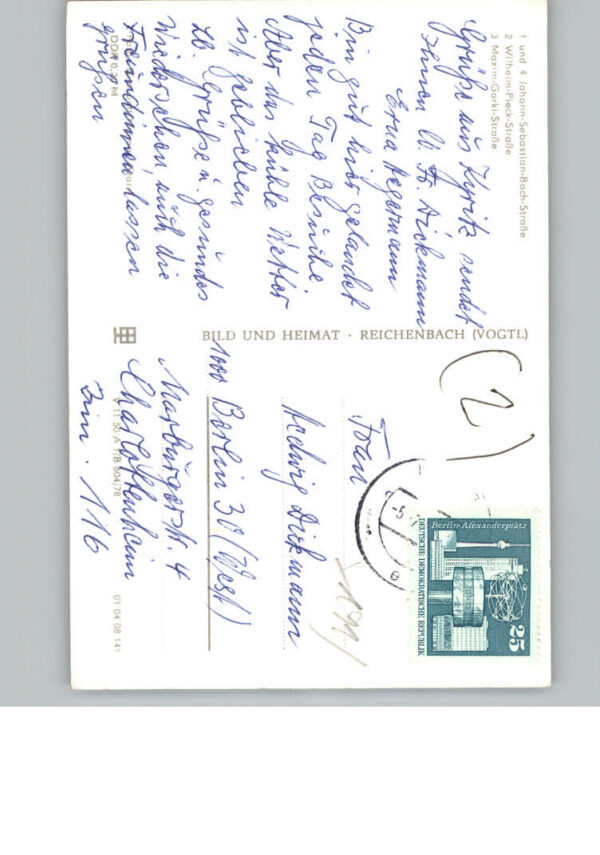 1 und 4 Johann-Sebastian-Bach-Straße
2 Wilhelm-Pieck-Straße
3 Maxim-Gorki-Straße
Grüße aus Kyritz sendet
Ihnen
Erna Hegermann
Bin gut hier gelandet
jeden Tag Besuche
Aber das kühle Wetter
ist geblieben
Lb. Grüße u. gesundes
Wiedersehen auch die
Freundinnen lassen
grüßen
DDR 0,20 M
BILD UND HEIMAT · REICHENBACH (VOGTL)
V 11 50 A 1/B 604/78
01 04 08 141
(2)
Frau
Hedwig Dickmann
1000 Berlin 30 (West)
Marburgerstr. 4
Charlottenheim
Zim. 116
Berlin-Alexanderplatz
DEUTSCHE DEMOKRATISCHE REPUBLIK
25